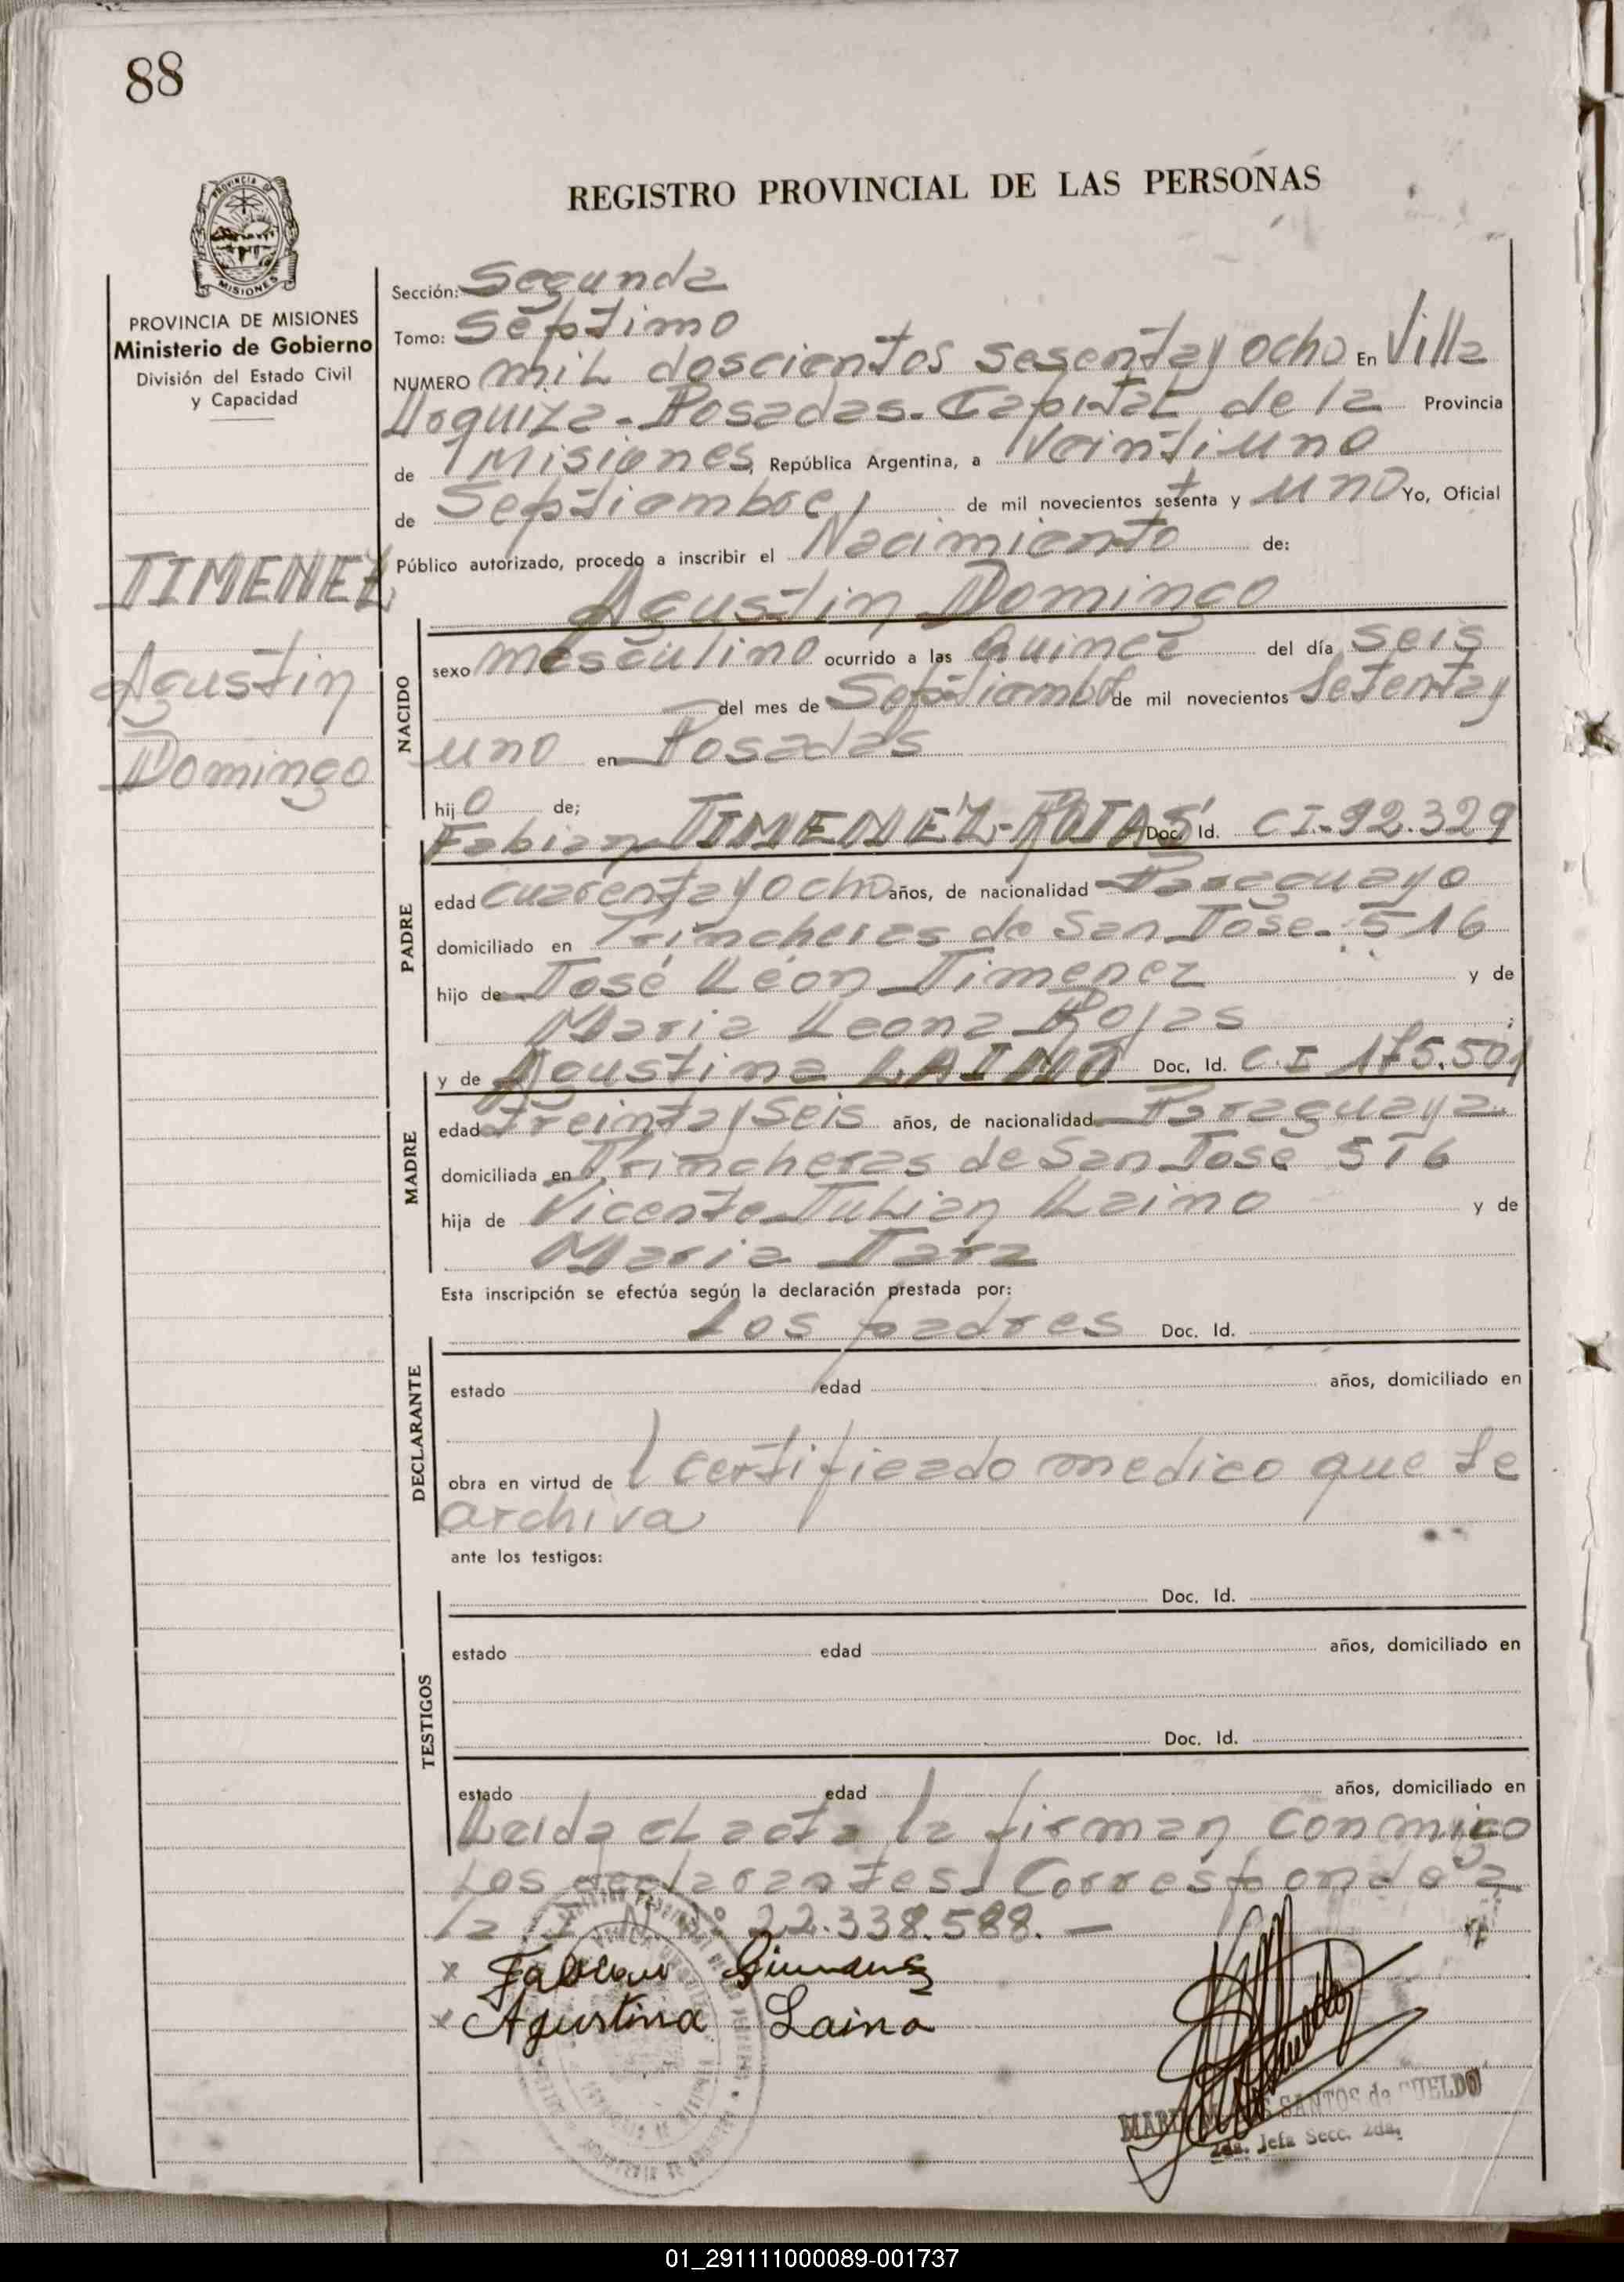 88
REGISTRO PROVINCIAL DE LAS PERSONAS
PROVINCIA DE
MISIONES
PROVINCIA DE MISIONES
Ministerio de Gobierno
División del Estado Civil
y Capacidad
JIMENEZ
Agustin
Domingo
Sección: Segunda
Tomo: Séptimo
NUMERO mil doscientos sesenta y ocho En Villa
Urquiza - Posadas - Capital de la Provincia
de Misiones, República Argentina, a Veintiuno
de Septiembre de mil novecientos setenta y uno Yo, Oficial
Público autorizado, procedo a inscribir el Nacimiento de:
Agustin Domingo
NACIDO
sexo masculino ocurrido a las Quince del día seis
del mes de Septiembre de mil novecientos Setenta y
uno en Posadas
hijo de;
Fabian JIMENEZ-ROJAS Doc. Id. CI-92.329
PADRE
edad cuarenta y ocho años, de nacionalidad Paraguayo
domiciliado en Trincheras de San José - 516
hijo de José Léon Jimenez y de
Maria Leona Rojas ;
y de Agustina LAINO Doc. Id. C.I 175.501
MADRE
edad treinta y seis años, de nacionalidad Paraguaya
domiciliada en Trincheras de San José 516
hija de Vicente Julian Laino y de
Maria Jara
Esta inscripción se efectúa según la declaración prestada por:
Los padres Doc. Id.
DECLARANTE
estado edad años, domiciliado en
obra en virtud de l certificado medico que se
archiva
ante los testigos:
Doc. Id.
TESTIGOS
estado edad años, domiciliado en
Doc. Id.
estado edad años, domiciliado en
Leida el acta la firman conmigo
Los declarantes. Corresponde a
la 22.338.588. —
x Fabian Gimenez
x Agustina Laino
SANTOS de SUELDO
2da. Jefa Secc. 2da.
01_291111000089-001737